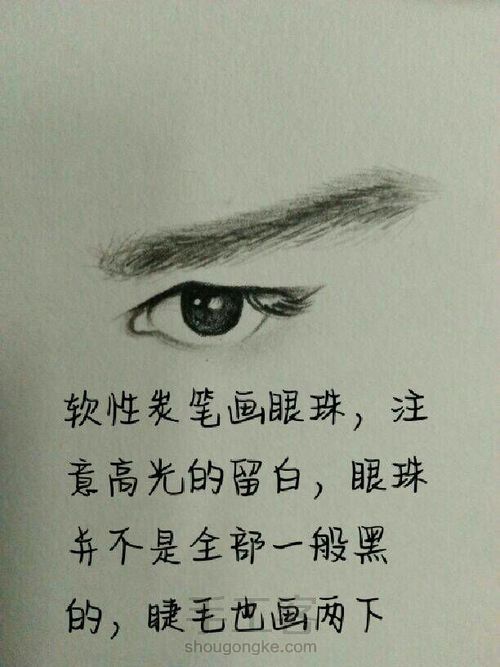 软性炭笔画眼珠，注
意高光的留白，眼珠
并不是全部一般黑
的，睫毛也画两下
shougongke.com